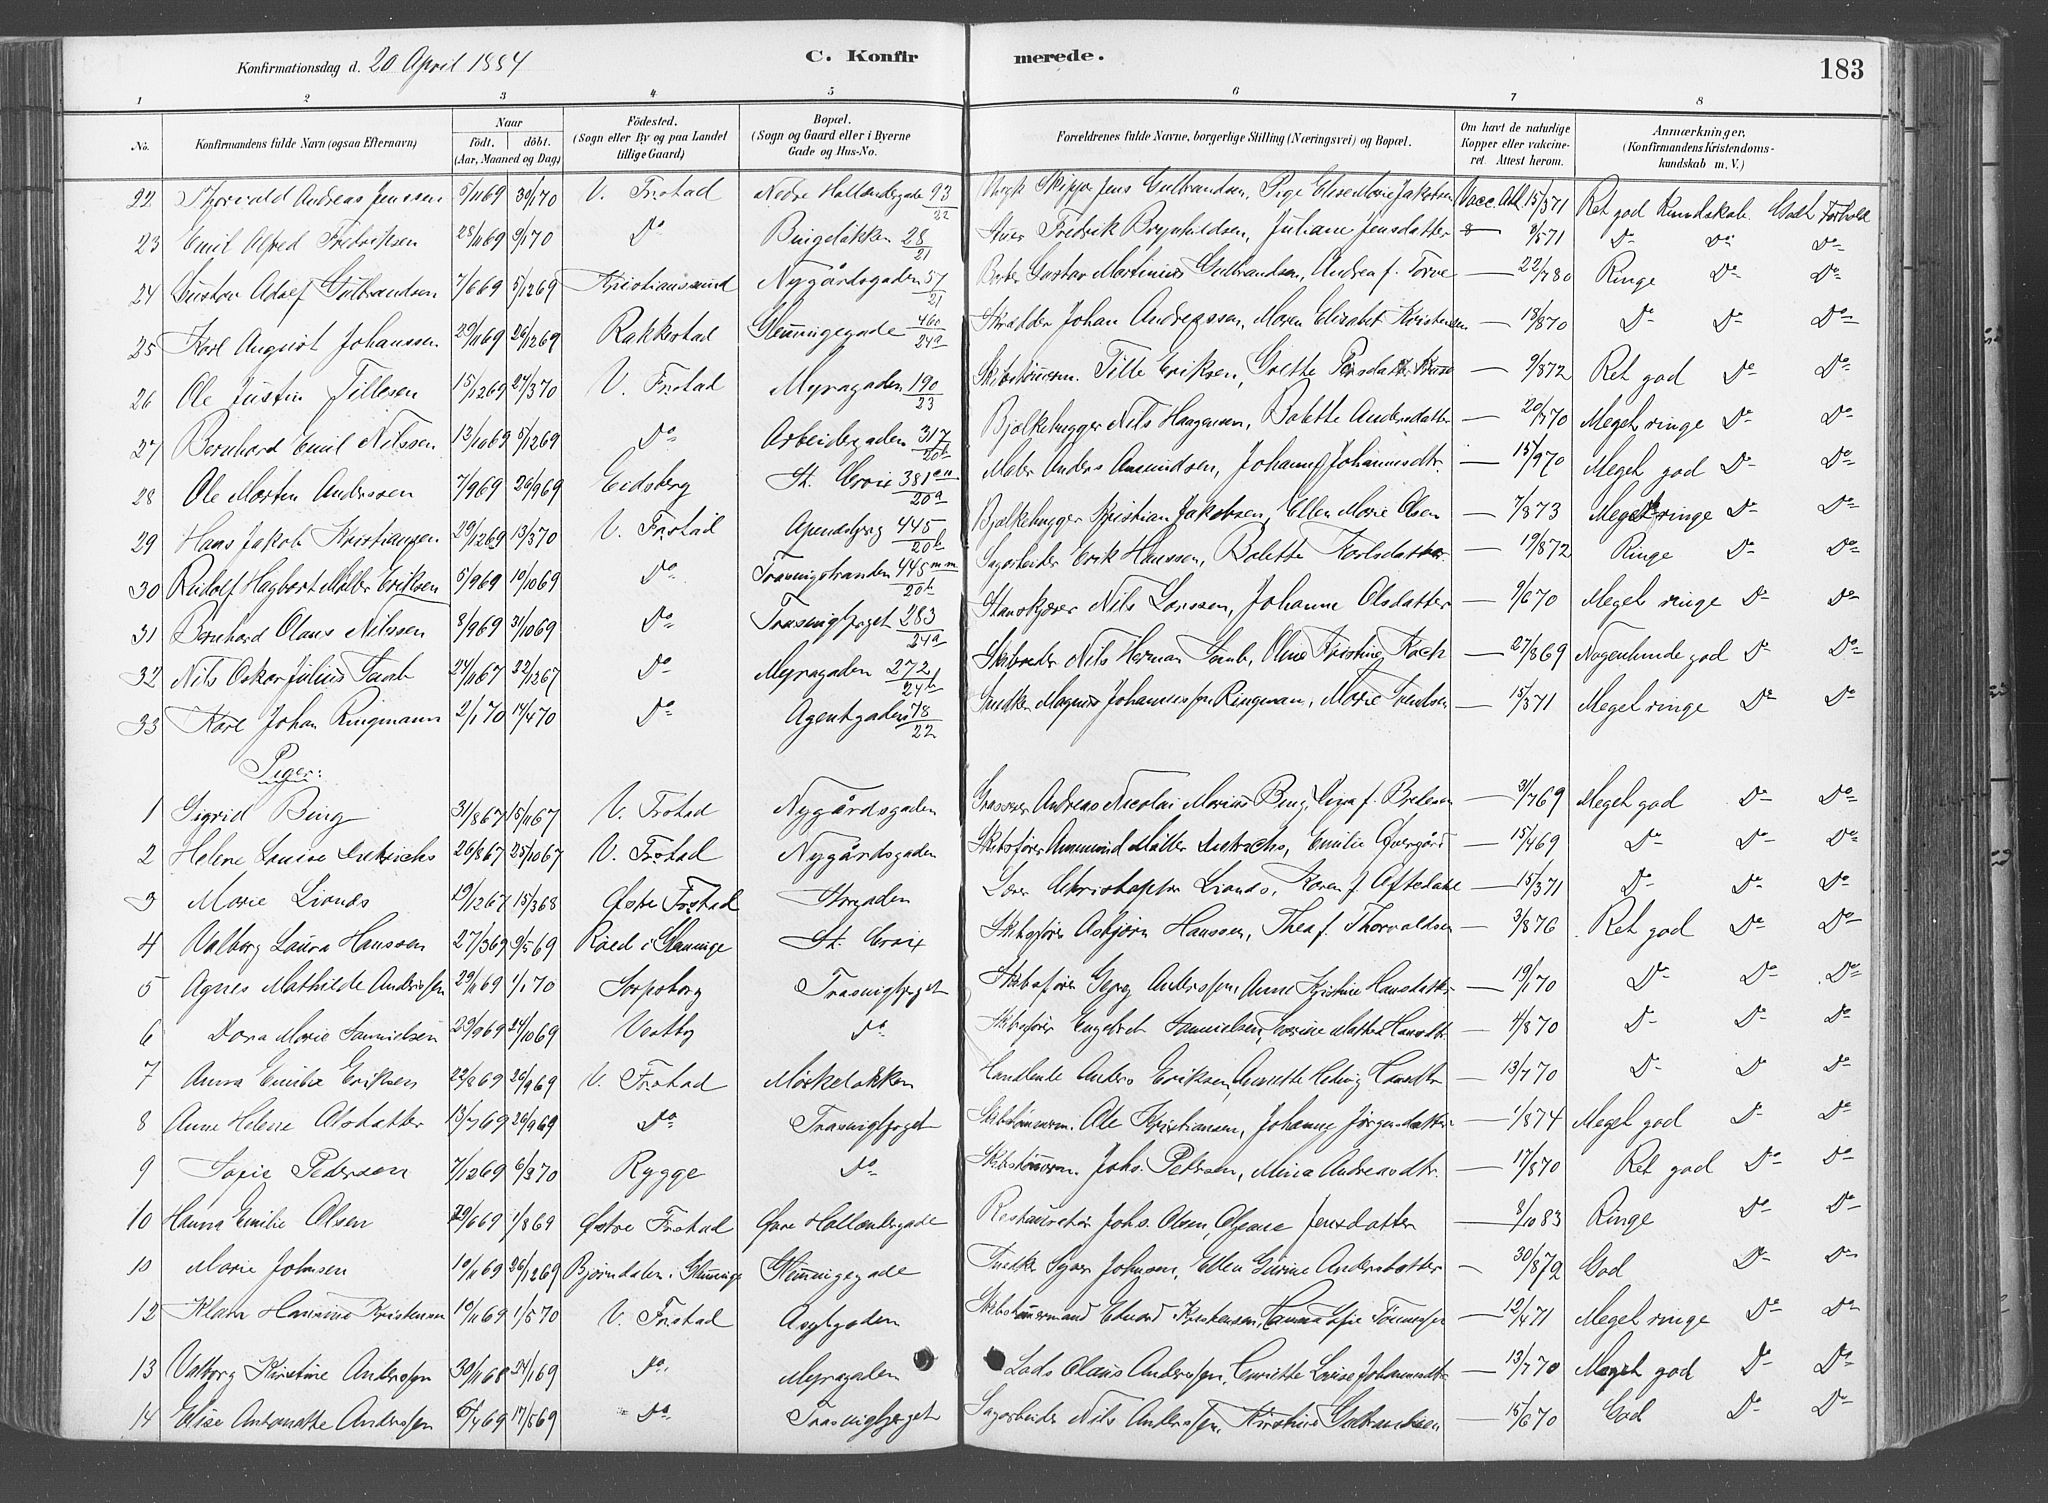 Konfirmationsdag d. 20 April 1884 C. Konfirmerede. 183
1 2 3 4 5 6 7 8
No. Konfirmandens fulde Navn (ogsaa Efternavn) Naar Født. døbt. (Aar, Maaned og Dag) Fødested. (Sogn eller By og paa Landet tillige Gaard) Bopæl. (Sogn og Gaard eller i Byerne Gade og Hus-No. Forældrenes fulde Navne, borgerlige Stilling (Næringsvei) og Bopæl. Om havt de naturlige Kopper eller vakcineret. Attest herom. Anmærkninger. (Konfirmandens Kristendomskundskab m. V.)
22 Thorvald Andreas Jenssen 5/1169 30/170 V. Frstad Nedre Hollendergade 93/22 Skipper Jens Gulbrandsen, Pige Else Marie Jakobsen Vacc. Att. 15/571 Ret god Kundskab. Godt Forhold
23 Emil Alfred Fredriksen 28/1169 9/170 Do Bingeløkken 28/21 Fredrik Brynhildsen, Juliane Jensdatter 8/571 Do Do Do
24 Gustav Adolf Gulbrandsen 7/669 5/1269 Kristianssund Nygårdsgaden 51/21 Gustav Martinius Gulbrandsen, Andrea f. Torve — 22/780 Ringe Do Do
25 Karl August Johanssen 29/1169 26/1269 Rakkestad Glemmigegade 460/24a Skrædder Johan Andreassen, Maren Elisabet Kristensen — 18/870 Do Do Do
26 Ole Justin Tillesen 15/1269 27/370 V. Frstad Myragaden 190/23 Skibstømrm. Tille Eriksen, Grethe — 9/872 Ret god Do Do
27 Bernhard Emil Nilssen 13/1069 5/1269 Do Arbeidergaden 317/20b Bjelkehugger Nils Haagensen, Bolette Andersdatter — 20/770 Meget ringe Do Do
28 Ole Martin Anderssen 7/969 26/969 Eidsberg St. Croix 381an/20a Maler Anders Amundsen, Johanne Johannesdtr. — 15/970 Meget god Do Do
29 Hans Jakob Kristiansen 29/1269 13/370 V. Frstad Apenesbjerg 445/20b Bjælkehugger Kristian Jakobsen, Ellen Marie Olsen — 7/873 Meget ringe Do Do
30 Rudolf Hagbart Møller Eriksen 5/969 10/1069 Do Trosvigstranden 445mm/20b Sagarbeider Erik Hanssen, Bolette Karlsdatter — 19/872 Ringe Do Do
31 Bernhard Olaus Nilssen 8/969 31/1069 Do Trosvigberget 283/24a Nils Larssen, Johanne Olsdatter — 9/670 Meget ringe Do Do
32 Nils Oskar Julius 24/1167 22/1267 Do Myragaden 272/24b Skibsreder Nils Herman, Oline Kristine Koch — 27/869 Nogenlunde god Do Do
33 Karl Johan Ringmann 2/170 17/470 Do Agentgaden 78/22 Snedker Magnus Johannessen Ringman, Marie — 15/371 Meget ringe Do Do
Piger:
1 Sigrid Bing 31/867 15/1167 V. Frstad Nygårdsgaden Andreas Nicolai Marius Bing, — 31/769 Meget god Do Do
2 Helene Louise Dietrichs 26/867 25/1067 V. Frstad Nygårdsgaden Skibsfører Ammund Møller Dietrichs, Emilie Øvergård — 15/469 Do Do Do
3 Marie Lionæs 19/1267 15/368 Østre Frstad Storgaden Christopher Lionæs, Karen f. Aftedahl — 15/371 Do Do Do
4 Valborg Laura Hanssen 27/369 9/569 Røed i Glemminge St. Croix Skibsfører Asbjørn Hanssen, Thea f. Thorvaldsen — 3/876 Ret god Do Do
5 Agnes Mathilde Anderssen 29/1169 1/170 Sarpsborg Trosvigberget Skibsfører Georg Anderssen, Anne Kristine Hansdatter — 19/170 Do Do Do
6 Dora Marie Samuelsen 29/969 24/1069 Vestby Do Skibsfører Engebret Samuelsen, Karine Mathea Hansdtr. — 4/870 Do Do Do
7 Anna Emilie Eriksen 22/869 26/969 V. Frstad Mørkeløkken Handlende Anders Eriksen, Annette Hedvig Hansdtr — 13/770 Do Do Do
8 Anne Helene Olsdatter 13/769 26/969 Do Trosvigberget Skibstømrm. Ole Kristiansen, Johanne Jørgensdatter — 1/874 Meget god Do Do
9 Sofie Pedersen 7/1269 6/370 Rygge Do Skibstømrm. Johs. Petersen, Mina Andreasdtr. — 17/870 Ret god Do Do
10 Hanna Emilie Olsen 29/669 1/869 Østre Frstad Øvre Hollendergade Restauratør Johs. Olsen, Oleane Jensdatter — 8/1083 Ringe Do Do
11 Marie Johnsen 10/1169 26/1269 Bjørndalen i Glemminge Glemmingegade Snedker Johnsen, Ellen Gurine Andersdatter — 30/872 God Do Do
12 Klara Hannine Kristensen 10/1169 1/570 V. Frstad Asylgaden Skibstømrmand Edvard Kristensen, Hanna Sofie Tønnessen — 12/471 Meget ringe Do Do
13 Valborg Kristine Anderssen 30/1168 24/169 Do Myragaden Lods Olaus Anderssen, Henriette Lovise Johannesdtr — 13/770 Meget god Do Do
14 Elise Antonette Anderssen 5/469 17/569 Do Trosvigberget Sagarbeider Nils Anderssen, Kirstine Gulbrandsen — 15/670 God Do Do